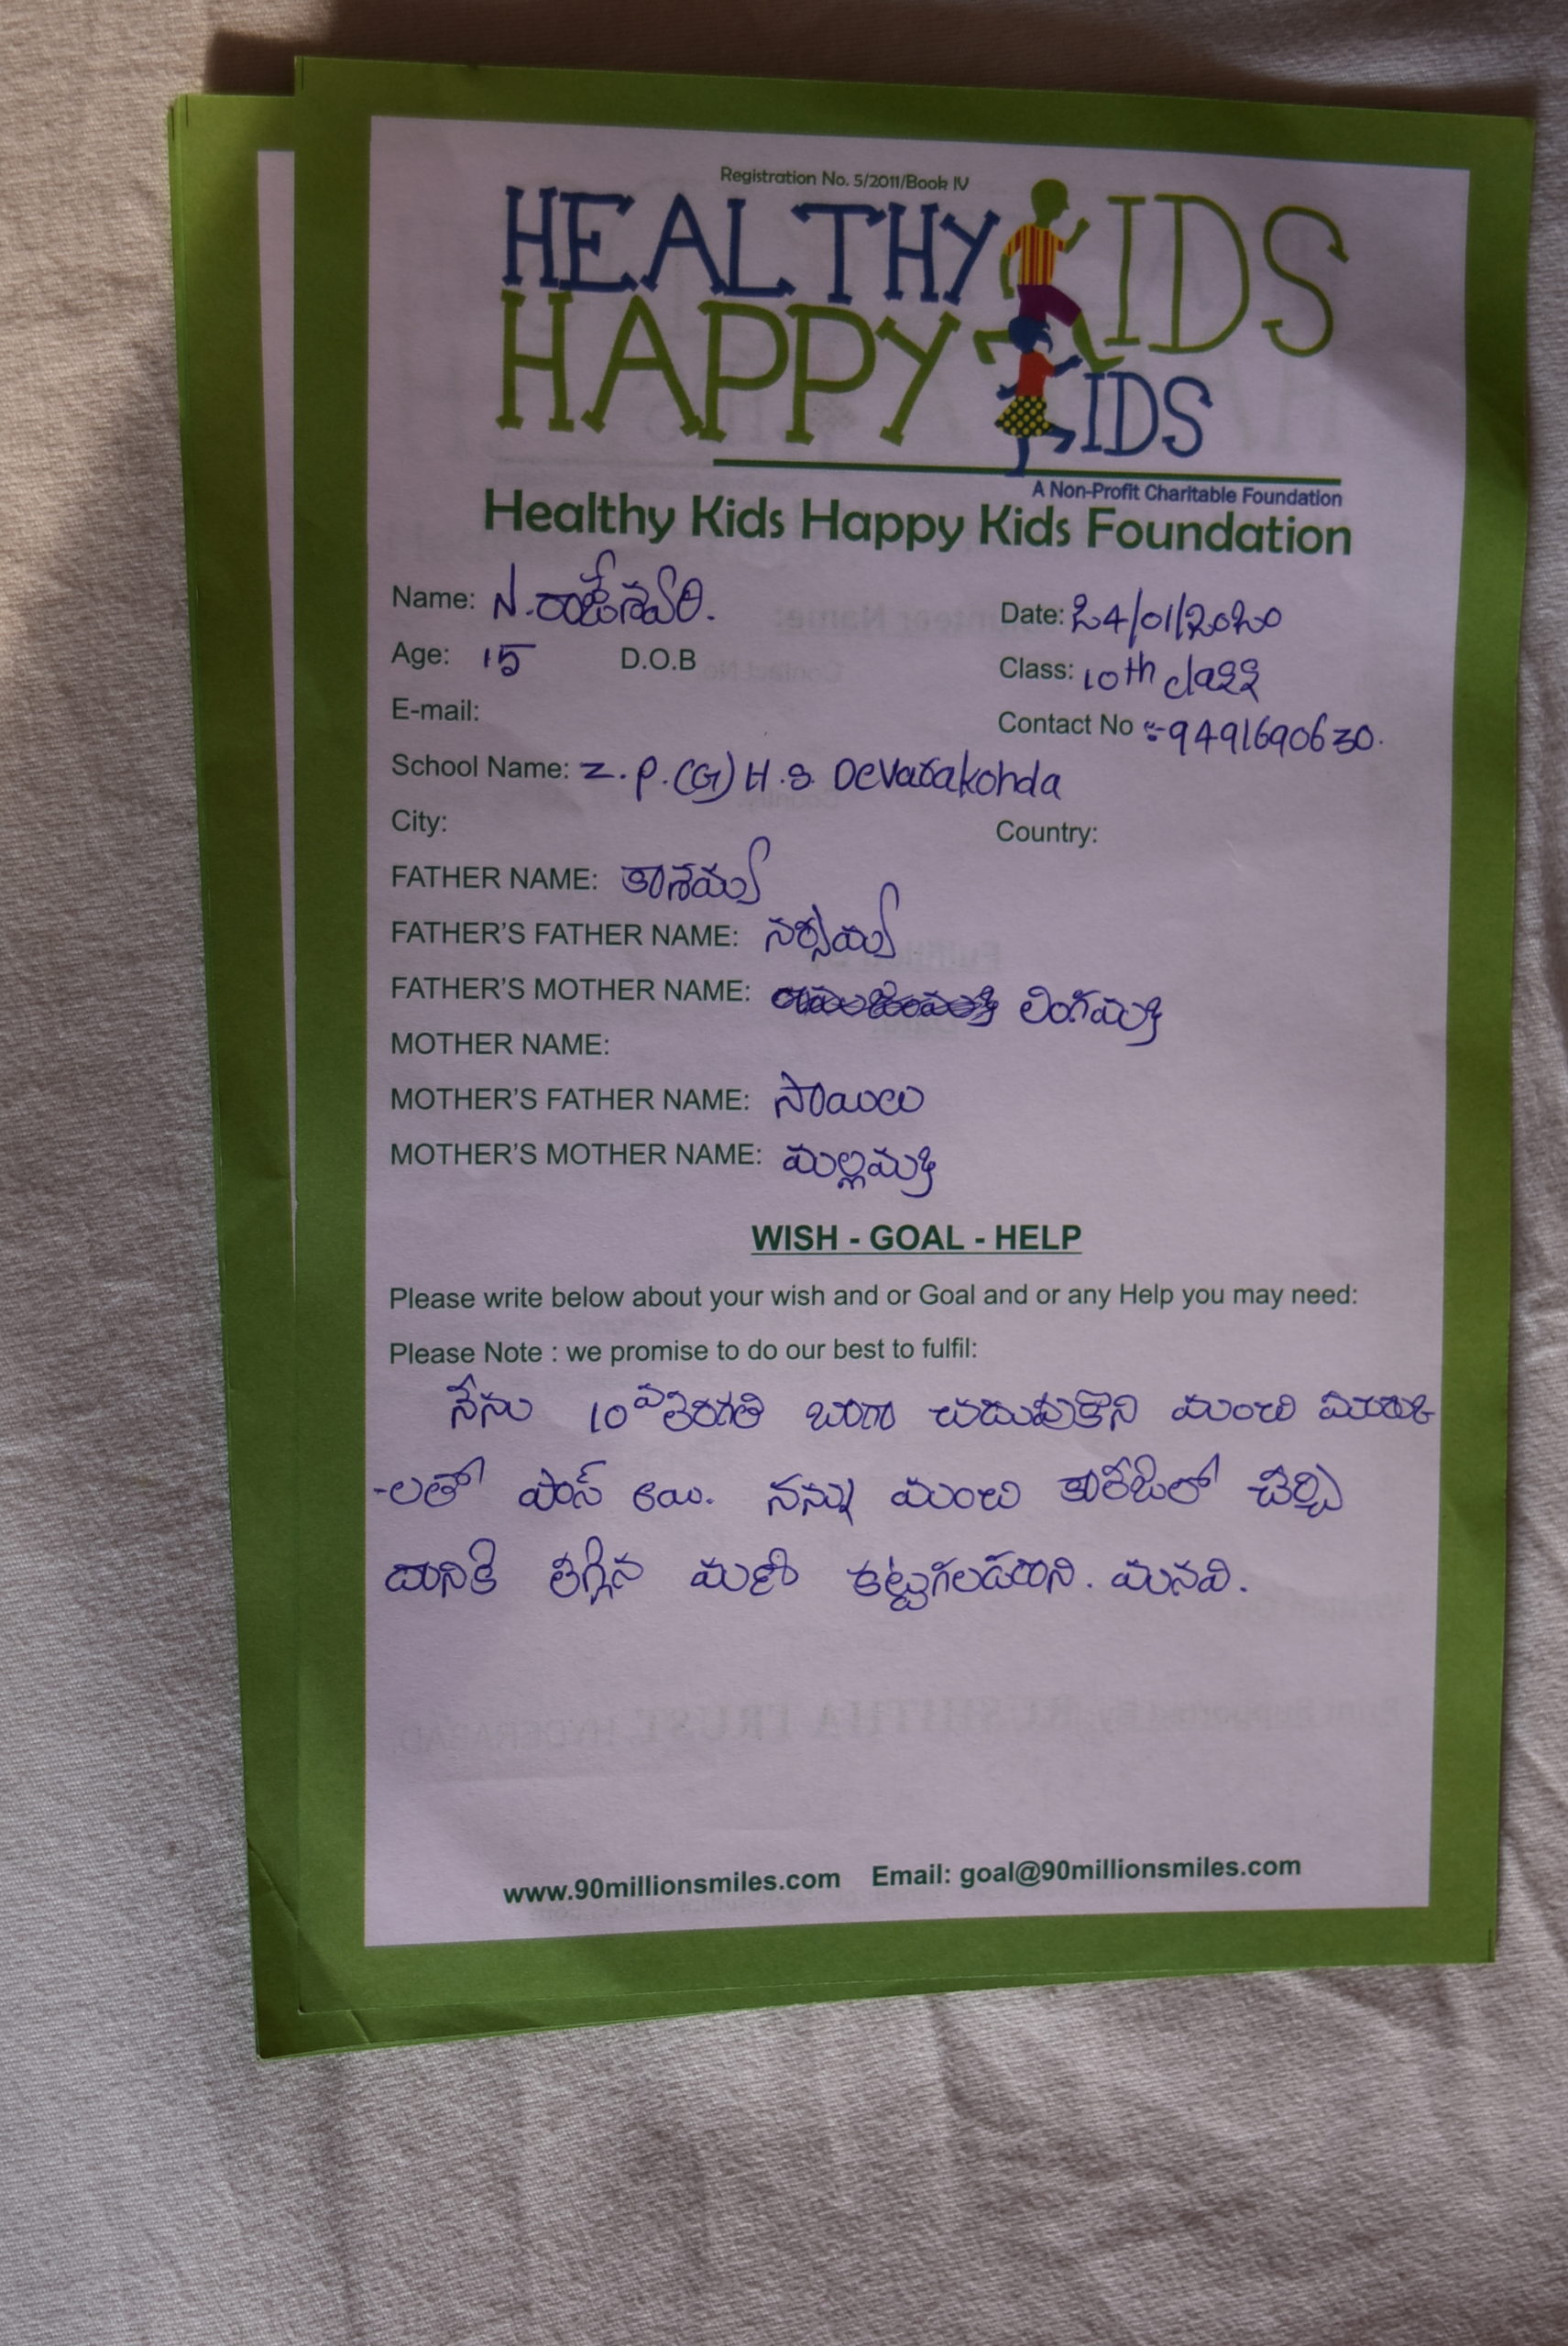 Registration No. 5/2011/Book IV
HEALTHY KIDS
HAPPY KIDS
A Non-Profit Charitable Foundation
Healthy Kids Happy Kids Foundation
Name: N. రాజేశ్వరి. Date: 24/01/2020
Age: 15 D.O.B Class: 10th class
E-mail: Contact No :- 9491690630.
School Name: Z.P.(G) H.S. Devarakonda
City: Country:
FATHER NAME: కాశయ్య
FATHER'S FATHER NAME: నర్సయ్య
FATHER'S MOTHER NAME: లింగమ్మ
MOTHER NAME:
MOTHER'S FATHER NAME: సాయిలు
MOTHER'S MOTHER NAME: మల్లమ్మ
WISH - GOAL - HELP
Please write below about your wish and or Goal and or any Help you may need:
Please Note : we promise to do our best to fulfil:
నేను 10వ తరగతి బాగా చదువుకొని మంచి
-లతో పాస్ అయి. నన్ను మంచి కాలేజిలో చేర్చి
దానికి తగ్గిన మణి కట్టగలడని. మనవి.
www.90millionsmiles.com Email: goal@90millionsmiles.com